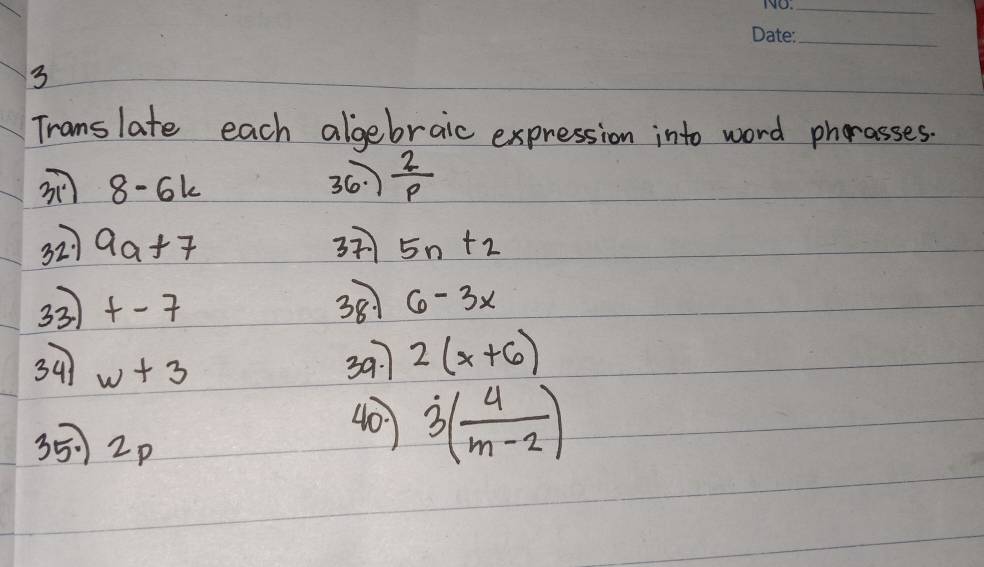 No:
Date:
3
Translate each algebraic expression into word phorasses.
31.) 8-6k
32.) 9a+7
33.) t-7
34.) w+3
35.) 2p
36.) 2/p
37.) 5n+2
38.) 6-3x
39.) 2(x+6)
40.) 3(4/m-2)